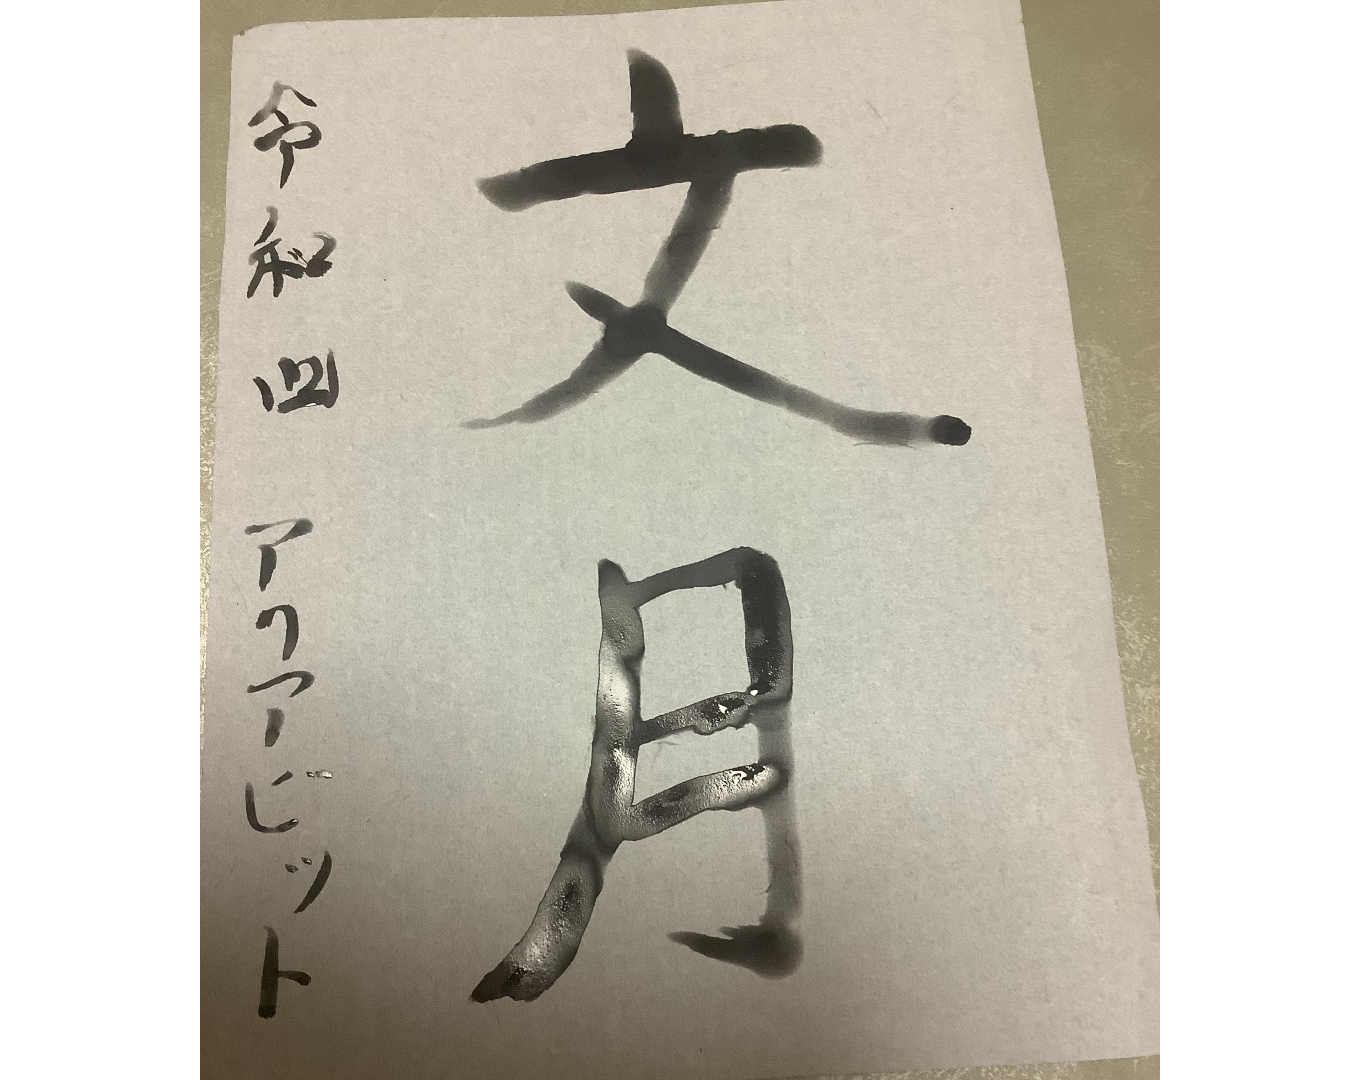 文月
令和四 アクアビット